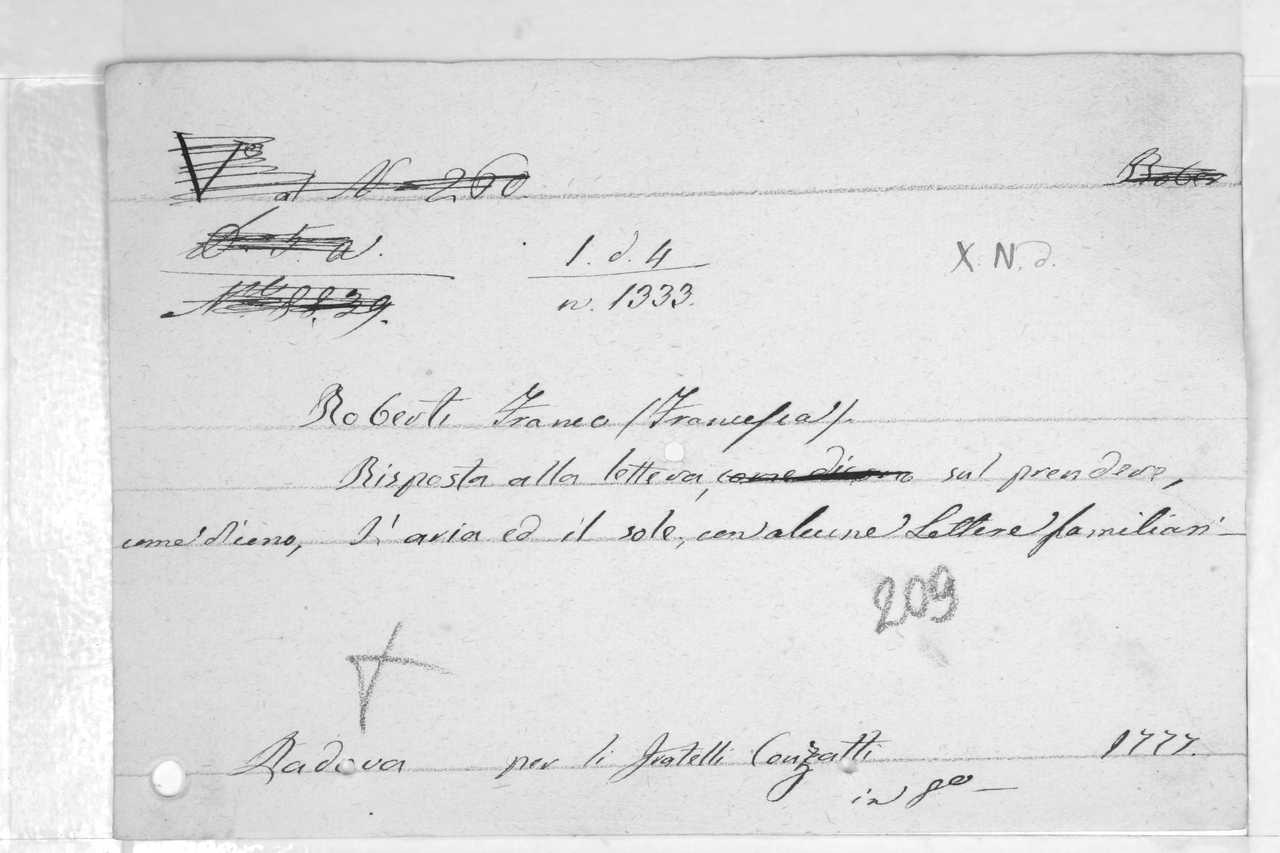 V° al N 260
Rober
L. 5. a.
1. d. 4
X. N. d.
n. 1333.
Roberti Franco (Francesca).
Risposta alla lettera, come dicono sul prendere,
come dicono, l'aria ed il sole, con alcune Lettere familiari
209
Padova per li fratelli Conzatti 1777.
in 8°